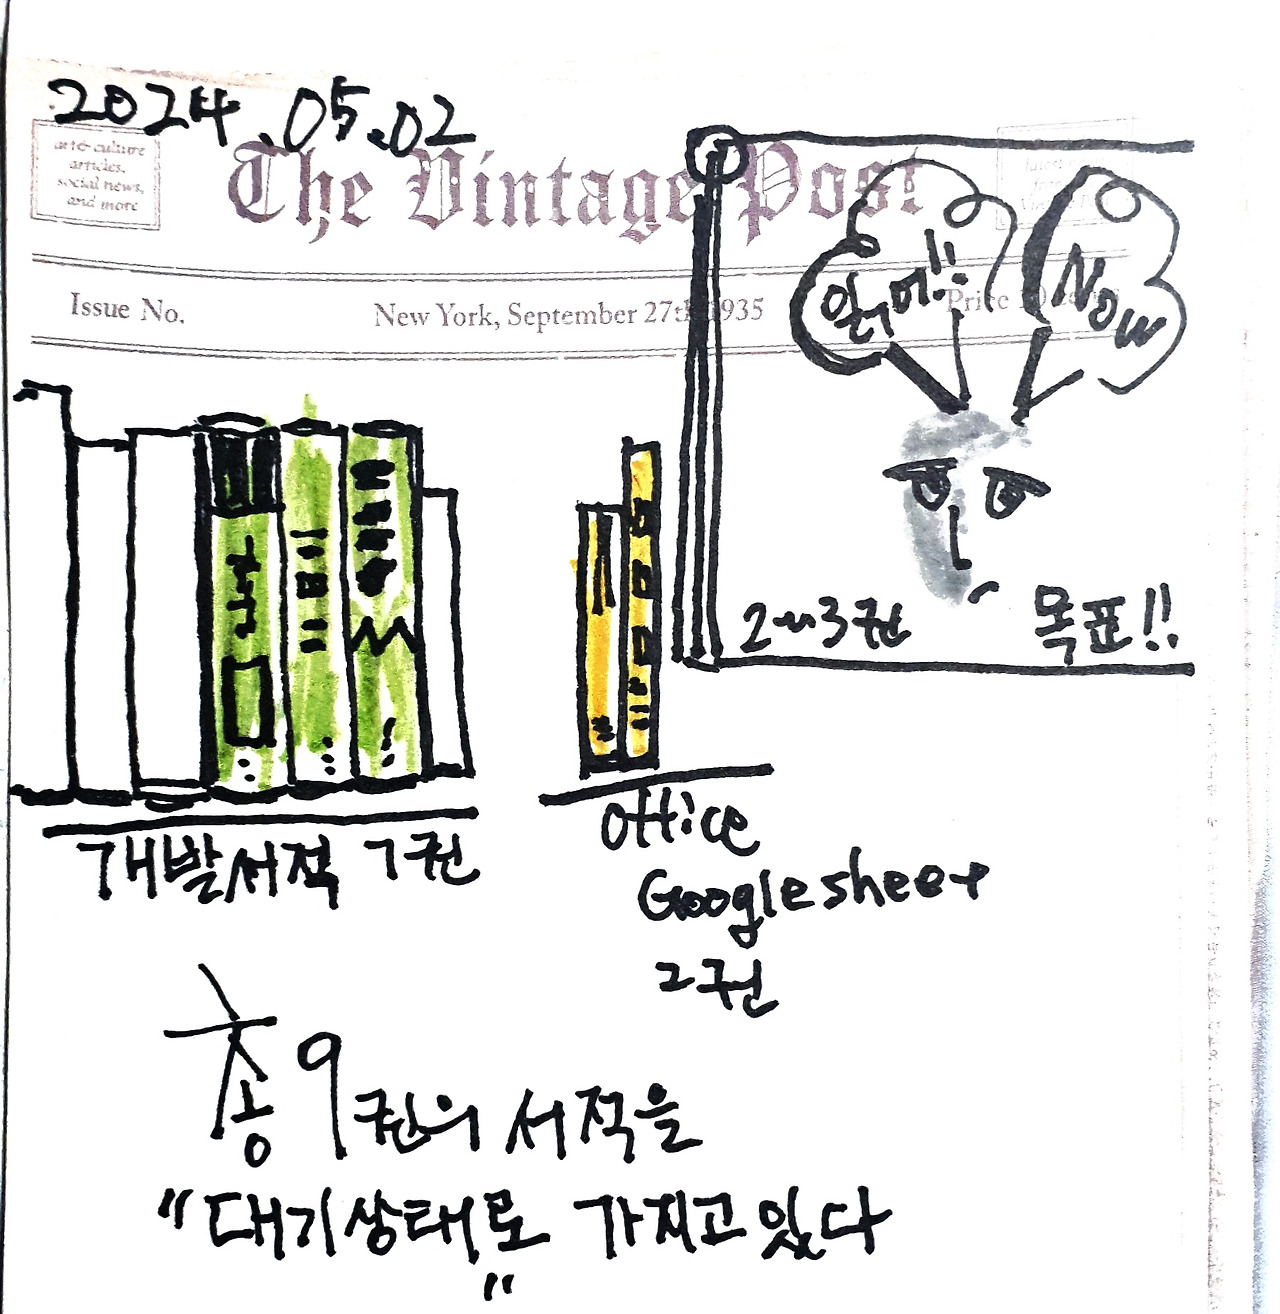 2024.05.02
art & culture
articles,
social news,
and more
The Vintage Post
Issue No.
New York, September 27th 1935
Price 10
읽어!!
Now
2~3권 목표!!
개발서적 7권
office
Googlesheet
2권
총 9권의 서적을
"대기상태로 가지고있다
"